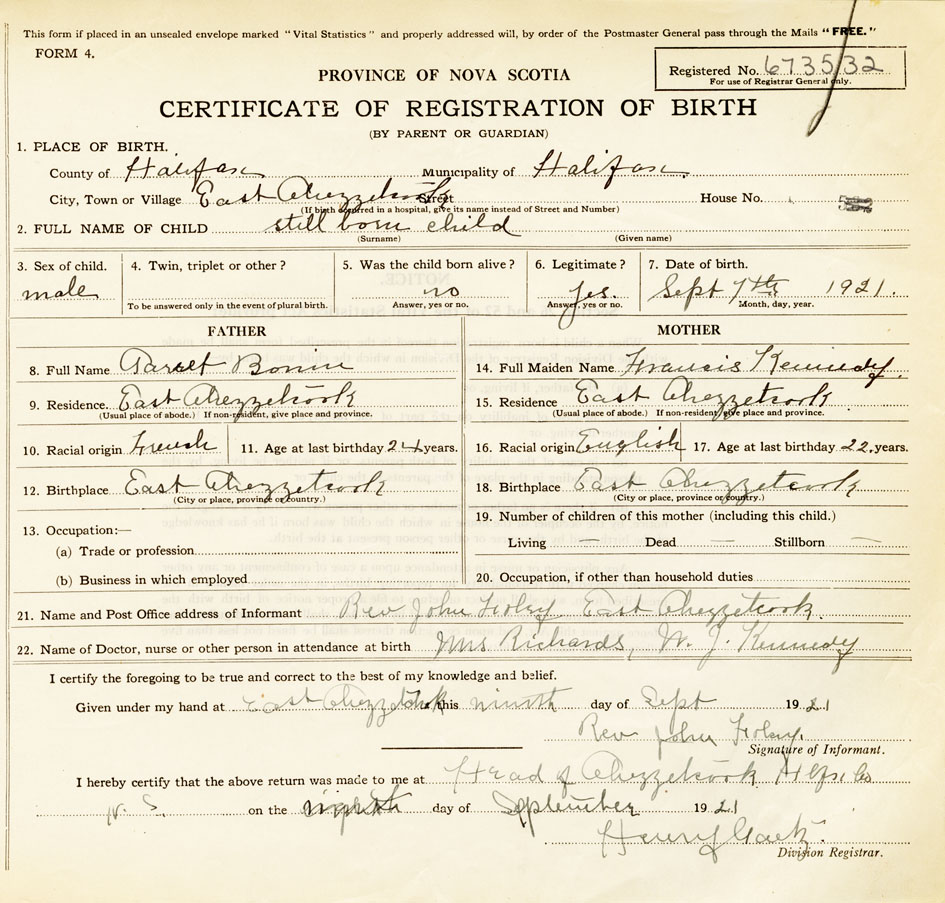 This form if placed in an unsealed envelope marked "Vital Statistics" and properly addressed will, by order of the Postmaster General pass through the Mails "FREE."
FORM 4.
Registered No. 673532
For use of Registrar General only.
PROVINCE OF NOVA SCOTIA
CERTIFICATE OF REGISTRATION OF BIRTH
(BY PARENT OR GUARDIAN)
1. PLACE OF BIRTH.
County of Halifax Municipality of Halifax
City, Town or Village East Chezzetcook Street House No.
(If birth occurred in a hospital, give its name instead of Street and Number)
2. FULL NAME OF CHILD still born child
(Surname) (Given name)
3. Sex of child. 4. Twin, triplet or other? 5. Was the child born alive? 6. Legitimate? 7. Date of birth.
male no yes. Sept 7th 1921.
To be answered only in the event of plural birth. Answer, yes or no. Answer, yes or no. Month, day, year.
FATHER MOTHER
8. Full Name Bonin 14. Full Maiden Name Francis Kennedy.
9. Residence. East Chezzetcook 15. Residence East Chezzetcook
(Usual place of abode.) If non-resident, give place and province. (Usual place of abode.) If non-resident, give place and province.
10. Racial origin French 11. Age at last birthday 24 years. 16. Racial origin English 17. Age at last birthday 22. years.
12. Birthplace East Chezzetcook 18. Birthplace East Chezzetcook
(City or place, province or country.) (City or place, province or country.)
13. Occupation:— 19. Number of children of this mother (including this child.)
(a) Trade or profession Living — Dead — Stillborn —
(b) Business in which employed 20. Occupation, if other than household duties
21. Name and Post Office address of Informant Rev John Foley East Chezzetcook.
22. Name of Doctor, nurse or other person in attendance at birth Mrs Richards, W. J. Kennedy
I certify the foregoing to be true and correct to the best of my knowledge and belief.
Given under my hand at East Chezzetcook this ninth day of Sept 1921
Rev John Foley.
Signature of Informant.
I hereby certify that the above return was made to me at Head of Chezzetcook Hfx Co
N. S. on the day of September 1921
Henry
Division Registrar.